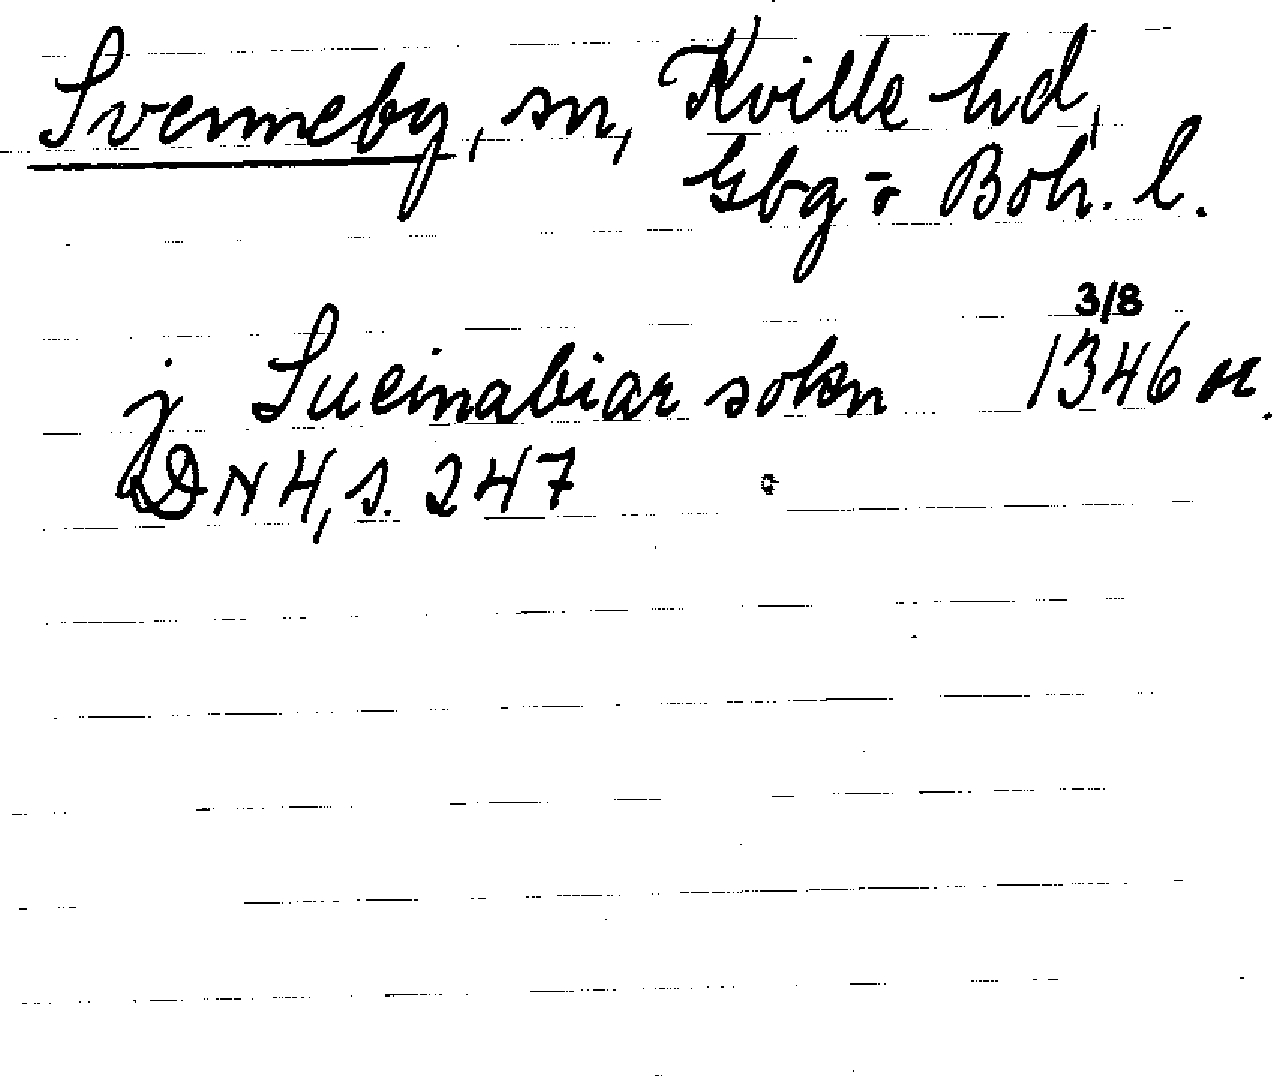 Svenneby, sn, Kville hd,
Gbg o Boh. l.
3/8
j Sueinabiar sokn 1346 or.
DN 4, s. 247